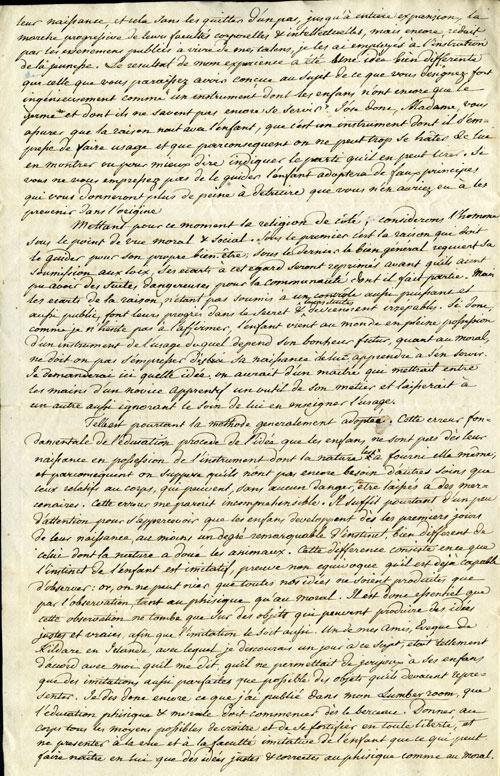 leur naissance, et cela sans les quitter d'un pas, jusqu'à entiere expansion, la
marche progressive de leurs facultés corporelles & intellectuelles, mais encore, réduit
par les evenemens publics à vivre de mes talens, je les ai employés à l'instruction
de la jeunesse. Le resultat de mon experience a été une idée bien differente
de celle que vous paraissez avoir concue au sujet de ce que vous designez fort
ingénieusement comme un instrument dont les enfans n'ont encore que le
germe et dont ils ne savent pas encore se servir. J'ose donc, Madame, vous
assurer que la raison nait avec l'enfant, que c'est un instrument dont il s'em-
presse de faire usage et que parconsequent on ne peut trop se hâter de lui
en montrer ou pour mieux dire indiquer le parti qu'il en peut tirer. Si
vous ne vous empressez pas de le guider l'enfant adoptera de faux principes
qui vous donneront plus de peine à detruire que vous n'en auriez eu à les
prevenir dans l'origine
Mettant pour ce moment la religion de coté, considerons l'homme
sous le point de vue moral & social. Sous le premier c'est la raison qui doit
le guider pour son propre bien être; sous le dernier le bien general requiert sa
soumission aux loix. Ses ecarts à cet égard seront reprimés avant qu'ils aient
pu avoir des suites dangereuses pour la communauté dont il fait partie. Mais
les ecarts de la raison, n'étant pas soumis à un controle aussi puissant et
aussi public, font leurs progrès dans le secret & deviennent
comme je n'hesite pas à l'affirmer, l'enfant vient au monde en pleine possession
d'un instrument de l'usage duquel depend son bonheur futur, quant au moral,
ne doit on pas s'empresser dès sa naissance de lui apprendre à s'en servir.
Je demanderai ici quelle idée on aurait d'un maitre qui mettrait entre
les mains d'un novice apprentif un outil de son métier et laisserait à
un autre aussi ignorant le soin de lui en enseigner l'usage.
Telle est pourtant la methode generalement adoptée. Cette erreur fon-
damentale de l'éducation procede de l'idée que les enfans ne sont pas dès leur
naissance en possession de l'instrument dont la nature les a fourni elle même,
et parconsequent on suppose qu'ils n'ont pas encore besoin d'autres soins que
ceux relatifs au corps, qui peuvent, sans aucun danger, être laissés à des mer-
cenaires. Cette erreur me parait incomprehensible. Il suffit pourtant d'un peu
d'attention pour s'appercevoir que les enfans developpent dès les premiers jours
de leur naissance, au moins un degré remarquable d'instinct, bien different de
celui dont la nature a doué les animaux. Cette difference consiste en ce que
l'instinct de l'enfant est imitatif, preuve non equivoque qu'il est deja capable
d'observer: or, on ne peut nier que toutes nos idées ne soient produites que
par l'observation, tant au phisique qu'au moral. Il est donc essentiel que
cette observation ne tombe que sur des objets qui peuvent produire des idées
justes et vraies, afin que l'imitation le soit aussi. Un de mes amis, Eveque de
Kildare en Irlande, avec lequel je discourais un jour à ce sujet, etait tellement
d'accord avec moi qu'il me dit, qu'il ne permettait de joujoux à ses enfans
que des imitations aussi parfaites que possible des objets qu'ils devaient repre-
senter. Je dis donc encore ce que j'ai publié dans mon Lumber room, que
l'éducation phisique & morale doit commencer dès le berceau. Donner au
corps tous les moyens possibles de croitre et de se fortifier en toute liberté, et
ne presenter à la vue et à la faculté imitative de l'enfant que ce qui peut
faire naitre en lui que des idées justes & correctes au phisique comme au moral.